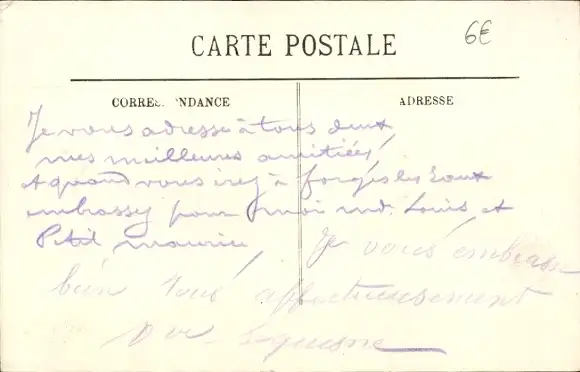 6€
CARTE POSTALE
CORRES NDANCE
ADRESSE
Je vous adresse à tous deux
mes meilleures amitiés
et quand vous irez à forges les Eaux
embrassez pour moi md. Louis et
Petit maurice
Je vous embrasse
bien tous affectueusement